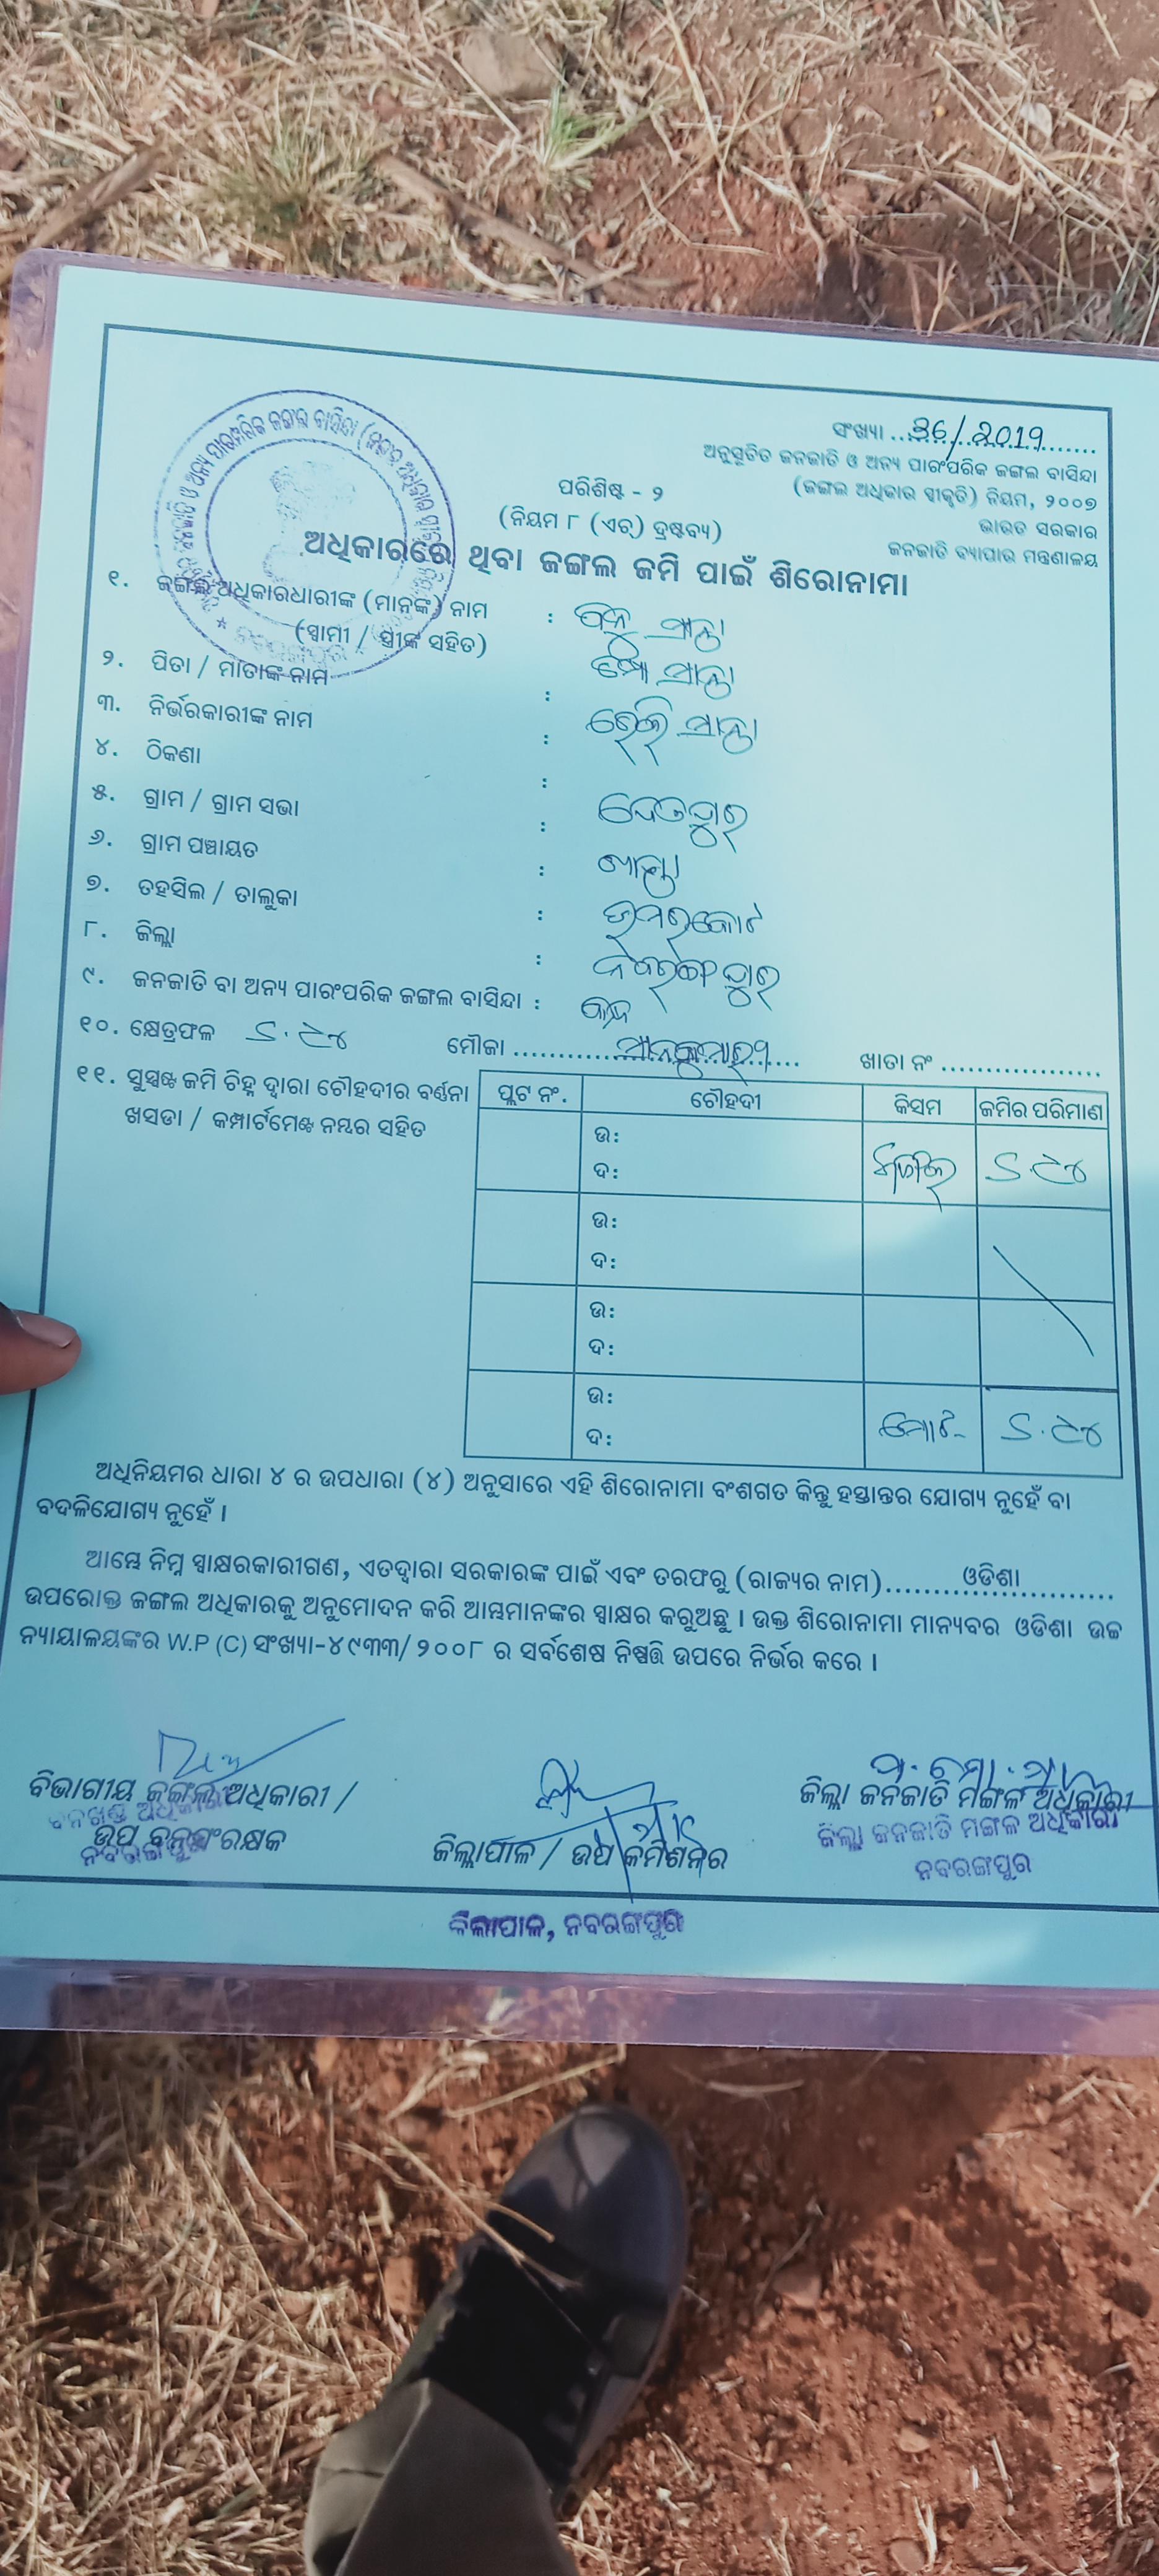 ସଂଖ୍ୟା ...36/2019...
ଅନୁସୂଚିତ ଜନଜାତି ଓ ଅନ୍ୟ ପାରଂପରିକ ଜଙ୍ଗଲ ବାସିନ୍ଦା
(ଜଙ୍ଗଲ ଅଧିକାର ସ୍ୱୀକୃତି) ନିୟମ, ୨୦୦୭
ଭାରତ ସରକାର
ଜନଜାତି ବ୍ୟାପାର ମନ୍ତ୍ରଣାଳୟ
ପରିଶିଷ୍ଟ - ୨
(ନିୟମ ୮ (ଏଚ୍) ଦ୍ରଷ୍ଟବ୍ୟ)
ଅଧିକାରରେ ଥିବା ଜଙ୍ଗଲ ଜମି ପାଇଁ ଶିରୋନାମା
୧. ଜଙ୍ଗଲ ଅଧିକାରଧାରୀଙ୍କ (ମାନଙ୍କ) ନାମ :
(ସ୍ୱାମୀ / ସ୍ତ୍ରୀଙ୍କ ସହିତ)
୨. ପିତା / ମାତାଙ୍କ ନାମ :
୩. ନିର୍ଭରକାରୀଙ୍କ ନାମ :
୪. ଠିକଣା :
୫. ଗ୍ରାମ / ଗ୍ରାମ ସଭା :
୬. ଗ୍ରାମ ପଞ୍ଚାୟତ :
୭. ତହସିଲ / ତାଲୁକା : ଉମରକୋଟ
୮. ଜିଲ୍ଲା : ନବରଙ୍ଗପୁର
୯. ଜନଜାତି ବା ଅନ୍ୟ ପାରଂପରିକ ଜଙ୍ଗଲ ବାସିନ୍ଦା :
୧୦. କ୍ଷେତ୍ରଫଳ ମୌଜା ଖାତା ନଂ ..................
୧୧. ସୁସ୍ପଷ୍ଟ ଜମି ଚିହ୍ନ ଦ୍ୱାରା ଚୌହଦୀର ବର୍ଣ୍ଣନା
ଖସଡା / କମ୍ପାର୍ଟମେଣ୍ଟ ନମ୍ବର ସହିତ
ପ୍ଲଟ ନଂ. ଚୌହଦୀ କିସମ ଜମିର ପରିମାଣ
ଉ:
ଦ:
ଉ:
ଦ:
ଉ:
ଦ:
ଉ:
ଦ: ମୋଟ-
ଅଧିନିୟମର ଧାରା ୪ ର ଉପଧାରା (୪) ଅନୁସାରେ ଏହି ଶିରୋନାମା ବଂଶଗତ କିନ୍ତୁ ହସ୍ତାନ୍ତର ଯୋଗ୍ୟ ନୁହେଁ ବା
ବଦଳିଯୋଗ୍ୟ ନୁହେଁ ।
ଆମ୍ଭେ ନିମ୍ନ ସ୍ୱାକ୍ଷରକାରୀଗଣ, ଏତଦ୍ୱାରା ସରକାରଙ୍କ ପାଇଁ ଏବଂ ତରଫରୁ (ରାଜ୍ୟର ନାମ)..........ଓଡିଶା..........
ଉପରୋକ୍ତ ଜଙ୍ଗଲ ଅଧିକାରକୁ ଅନୁମୋଦନ କରି ଆମ୍ଭମାନଙ୍କର ସ୍ୱାକ୍ଷର କରୁଅଛୁ । ଉକ୍ତ ଶିରୋନାମା ମାନ୍ୟବର ଓଡିଶା ଉଚ୍ଚ
ନ୍ୟାୟାଳୟଙ୍କର W.P (C) ସଂଖ୍ୟା-୪୯୩୩/ ୨୦୦୮ ର ସର୍ବଶେଷ ନିଷ୍ପତ୍ତି ଉପରେ ନିର୍ଭର କରେ ।
ବିଭାଗୀୟ ଜଙ୍ଗଲ ଅଧିକାରୀ /
ଉପ ବନସଂରକ୍ଷକ
ବନଖଣ୍ଡ ଅଧିକାରୀ
ନବରଙ୍ଗପୁର
ଜିଲ୍ଲାପାଳ / ଉପ କମିଶନର
ଜିଲ୍ଲା ଜନଜାତି ମଙ୍ଗଳ ଅଧିକାରୀ
ଜିଲ୍ଲା ଜନଜାତି ମଙ୍ଗଳ ଅଧିକାରୀ
ନବରଙ୍ଗପୁର
ଜିଲ୍ଲାପାଳ, ନବରଙ୍ଗପୁର